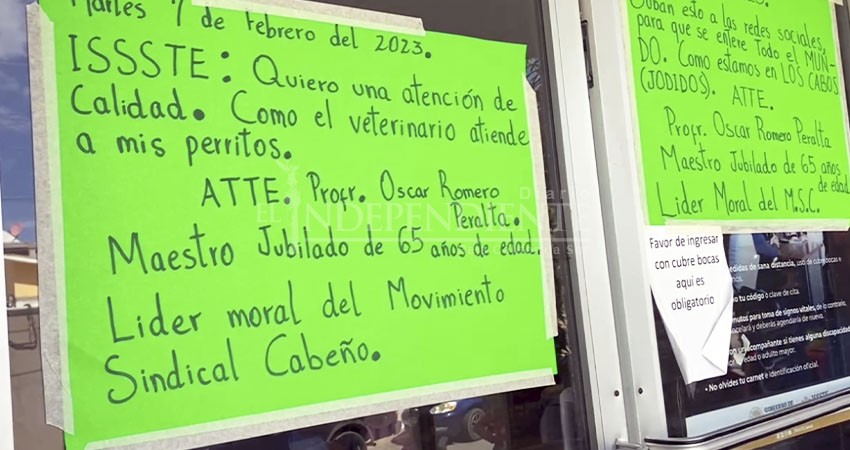 Martes 7 de Febrero del 2023.
ISSSTE: Quiero una atención de
Calidad. Como el veterinario atiende
a mis perritos.
ATTE. Profr. Oscar Romero
Peralta.
Maestro Jubilado de 65 años de edad.
Lider moral del Movimiento
Sindical Cabeño.
Suban esto a las redes sociales,
para que se entere Todo el MUN-
DO. Como estamos en LOS CABOS
(JODIDOS). ATTE.
Profr. Oscar Romero Peralta
Maestro Jubilado de 65 años
de edad
Lider Moral del M.S.C.
Favor de ingresar
con cubre bocas
aqui es
obligatorio
medidas de sana distancia, uso de cubrebocas e
tu código o clave de cita.
minutos para toma de signos vitales, de lo contrario,
cancelará y deberás agendarla de nuevo.
un acompañante si tienes alguna discapacidad
o adulto mayor.
• No olvides tu carnet e identificación oficial.
GOBIERNO DE
Diario
EL INDEPENDIENTE